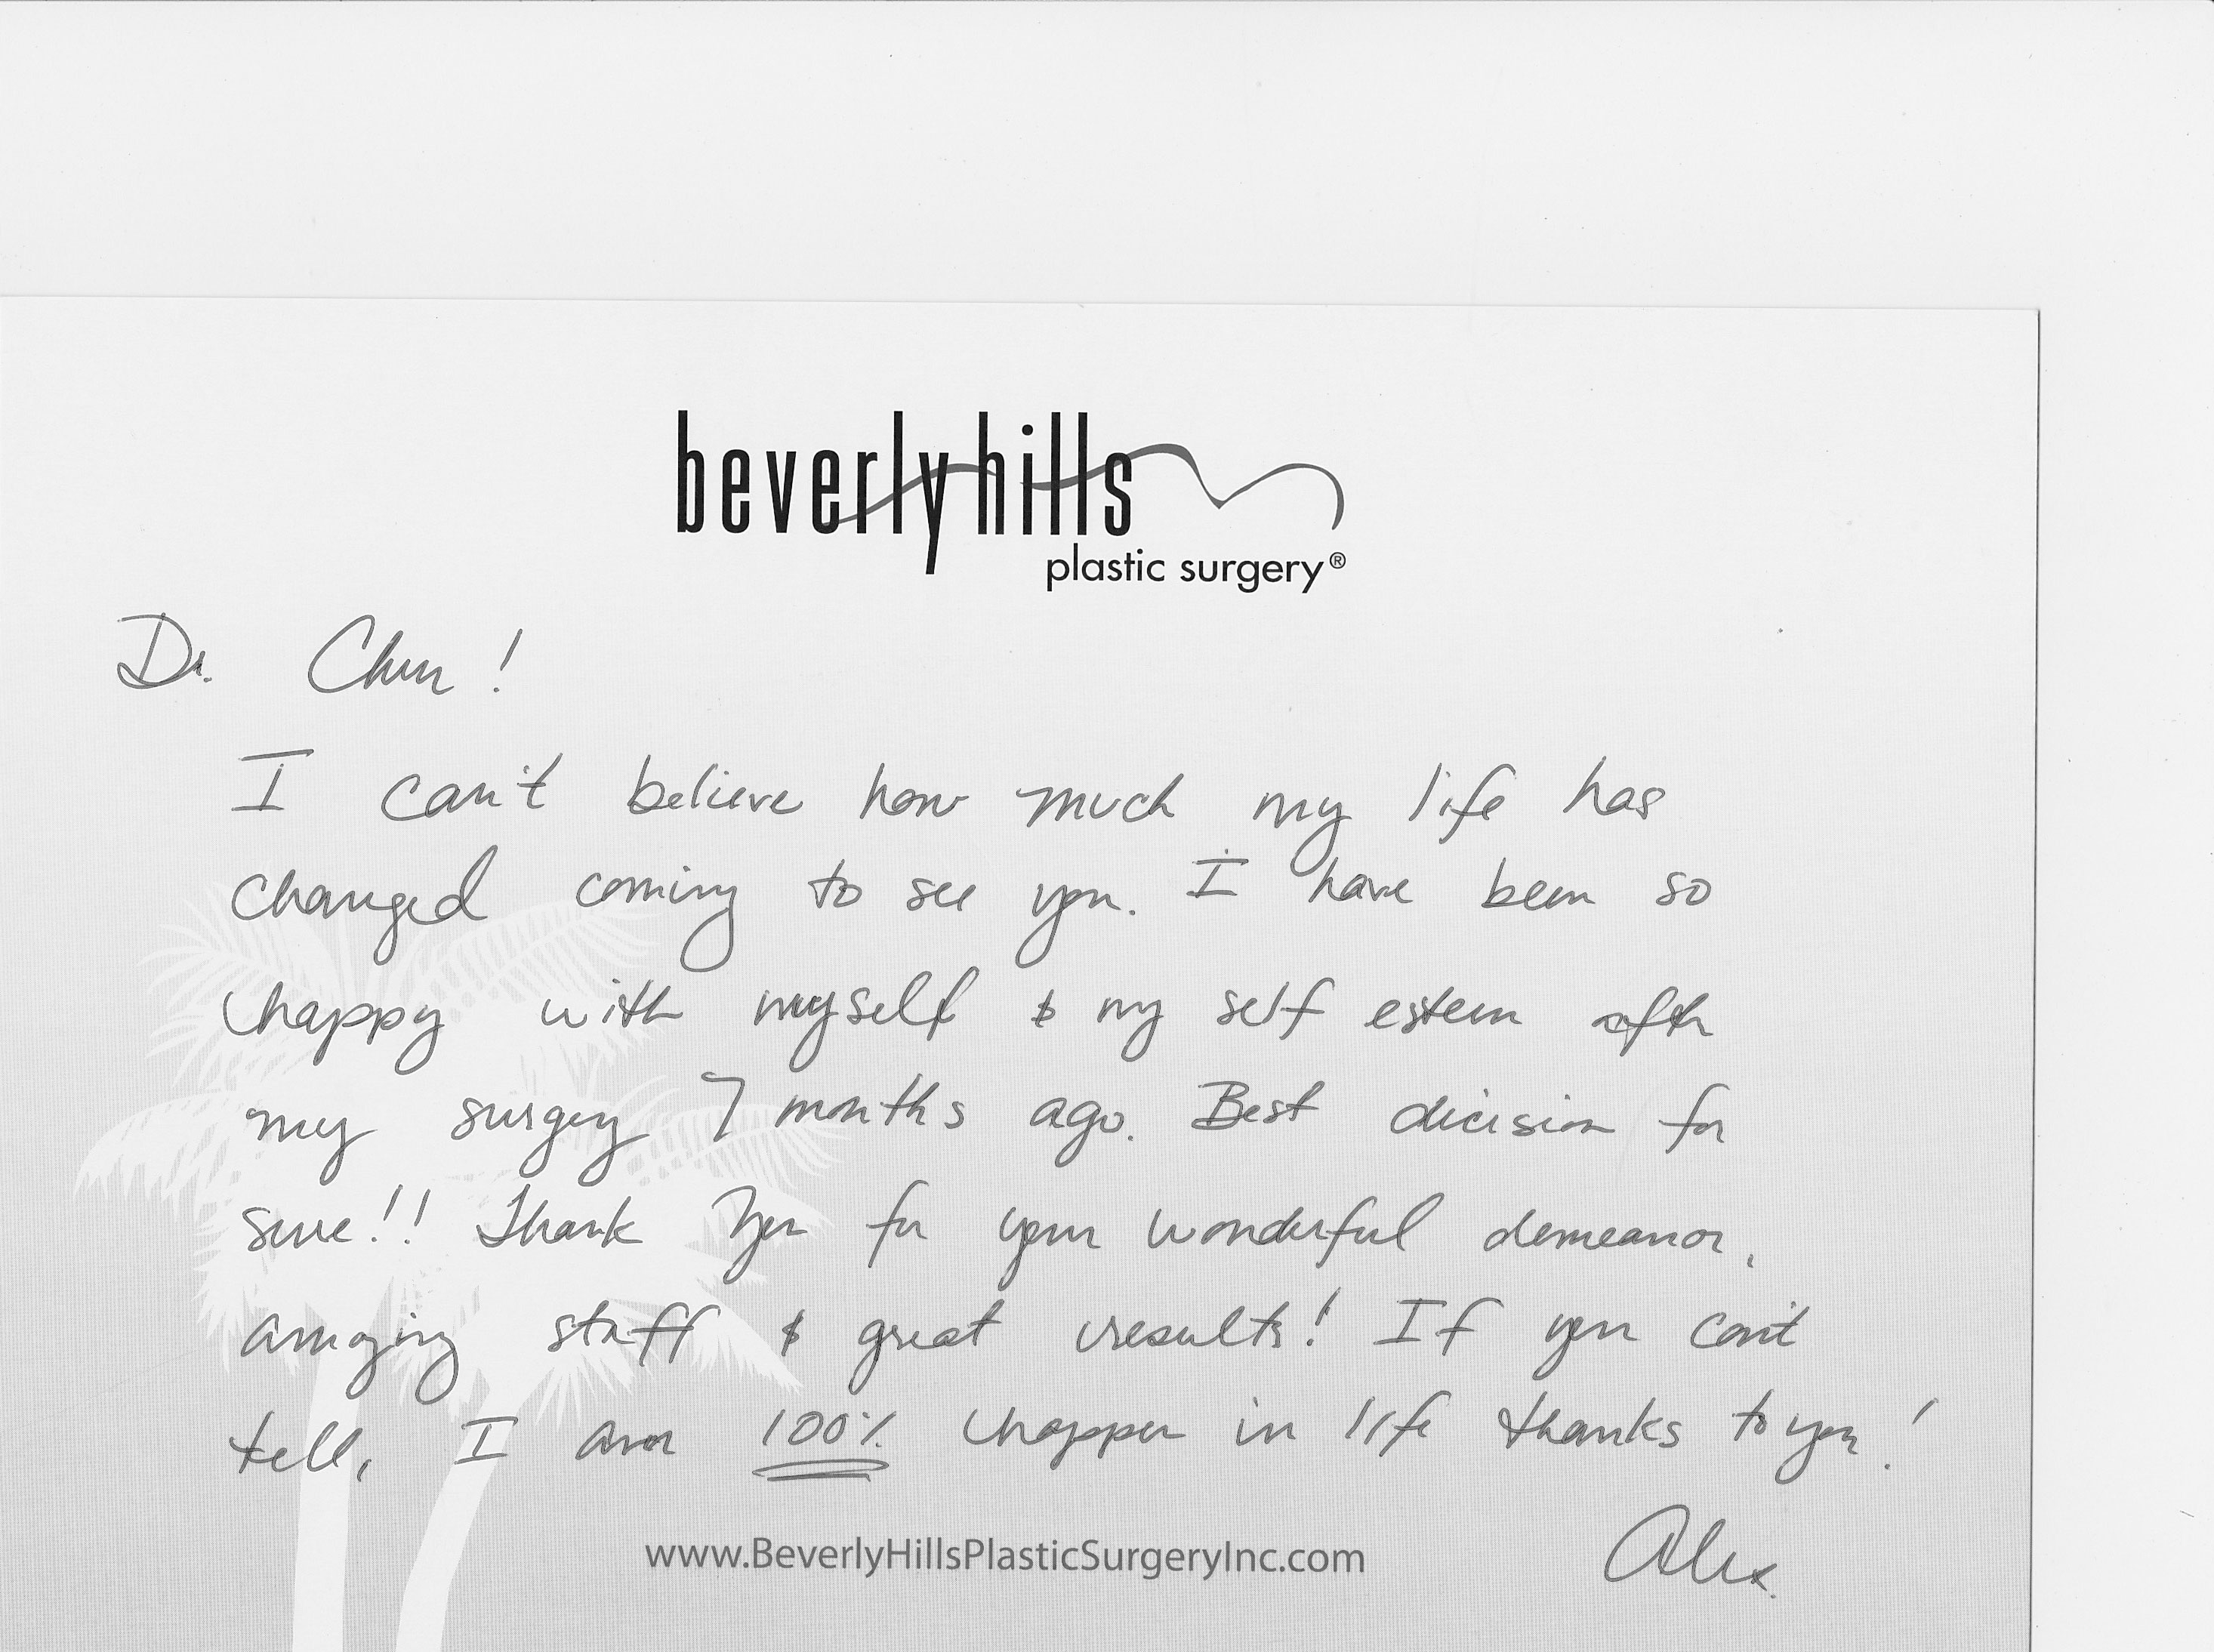 beverly hills
plastic surgery®
Dr. Chen!
I can't believe how much my life has
changed coming to see you. I have been so
happy with myself & my self esteem after
my surgery 7 months ago. Best dicision for
sure!! Thank You for your wonderful demeanor,
amazing staff & great results! If you can't
tell, I am 100% happer in life thanks to you!
www.BeverlyHillsPlasticSurgeryInc.com
Alex